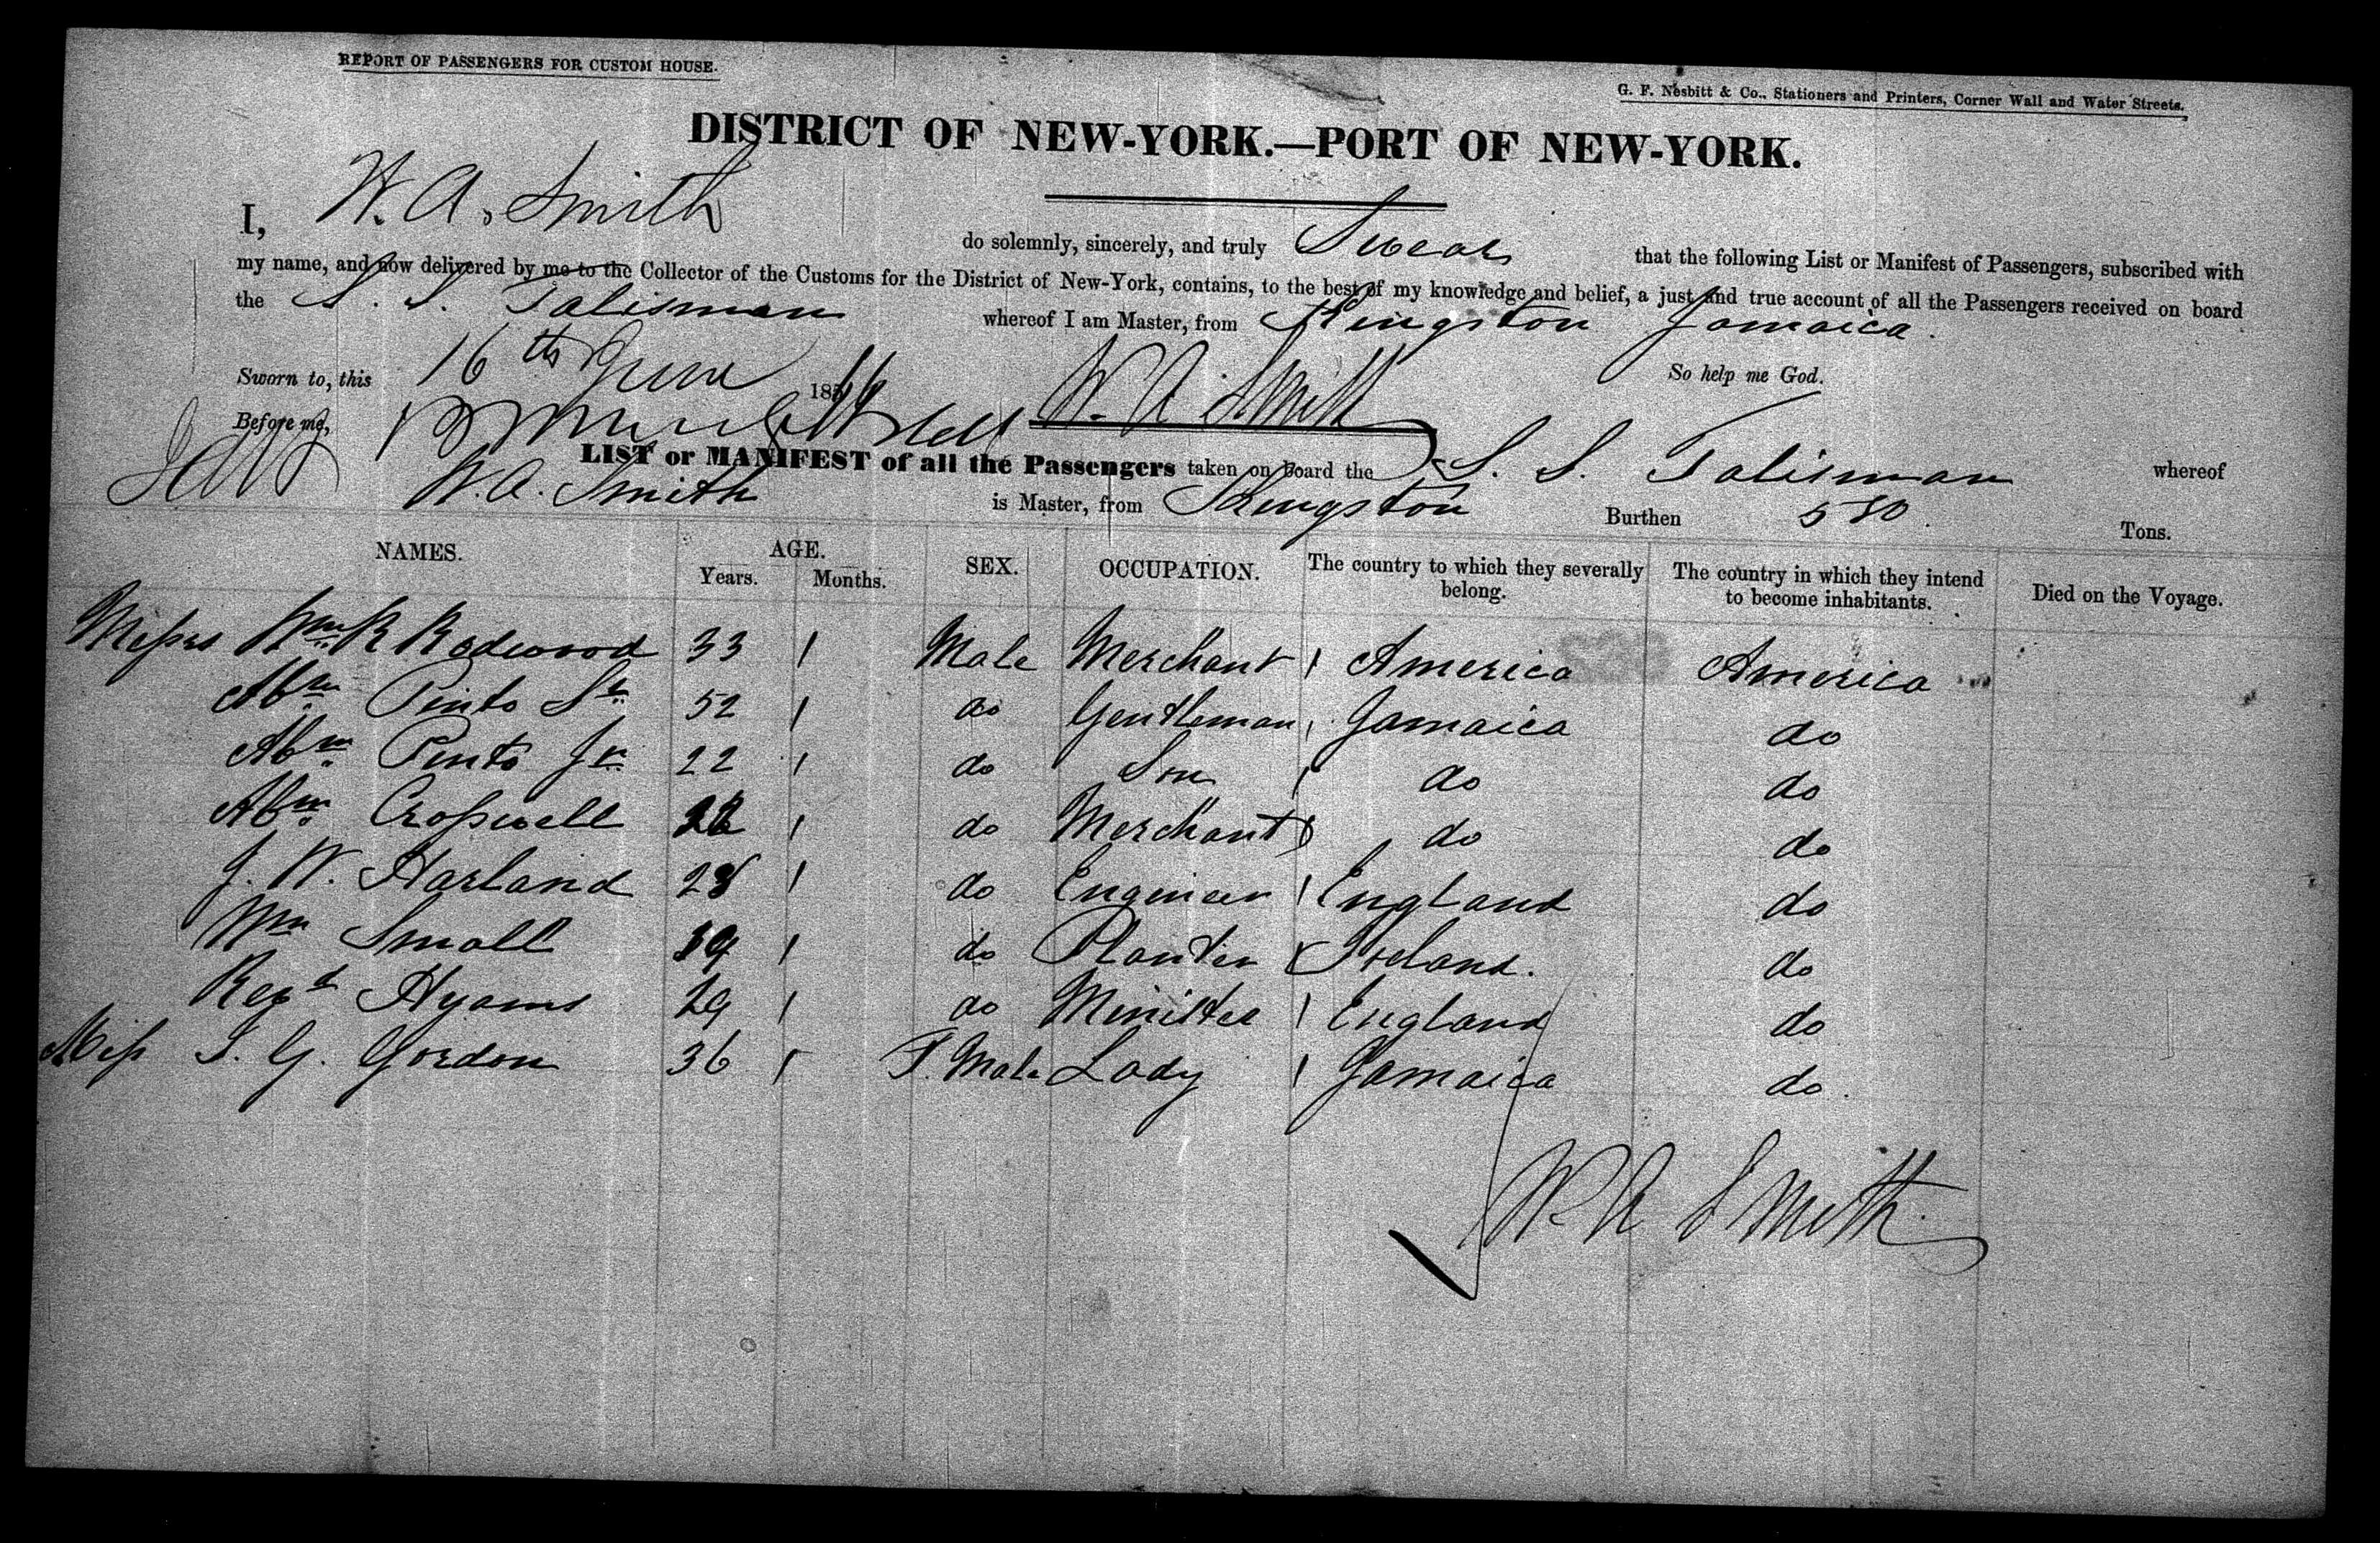 REPORT OF PASSENGERS FOR CUSTOM HOUSE.
G. F. Nesbitt & Co., Stationers and Printers, Corner Wall and Water Streets.
DISTRICT OF NEW-YORK.—PORT OF NEW-YORK.
I, W. A. Smith do solemnly, sincerely, and truly Swear that the following List or Manifest of Passengers, subscribed with
my name, and now delivered by me to the Collector of the Customs for the District of New-York, contains, to the best of my knowledge and belief, a just and true account of all the Passengers received on board
the S. S. Talisman whereof I am Master, from Kingston Jamaica.
Sworn to, this 16th June 1866 So help me God.
Before me, W. A Smith
LIST or MANIFEST of all the Passengers taken on board the S. S. Talisman whereof
W. A. Smith is Master, from Kingston Burthen 580 Tons.
NAMES. AGE. Years. Months. SEX. OCCUPATION. The country to which they severally belong. The country in which they intend to become inhabitants. Died on the Voyage.
Messrs Wm R Redwood 33 Male Merchant America America
Abm Pinto Sr 52 do Gentleman Jamaica do
Abm Pinto Jr 22 do Son do do
Abm Crosswell do Merchant do do
J. W. Harland 28 do Engineer England do
Wm Small 19 do Planter Ireland. do
Revd Hyams 29 do Minister England do
Miss S. G. Gordon 36 F. Male Lady Jamaica do
W. A Smith